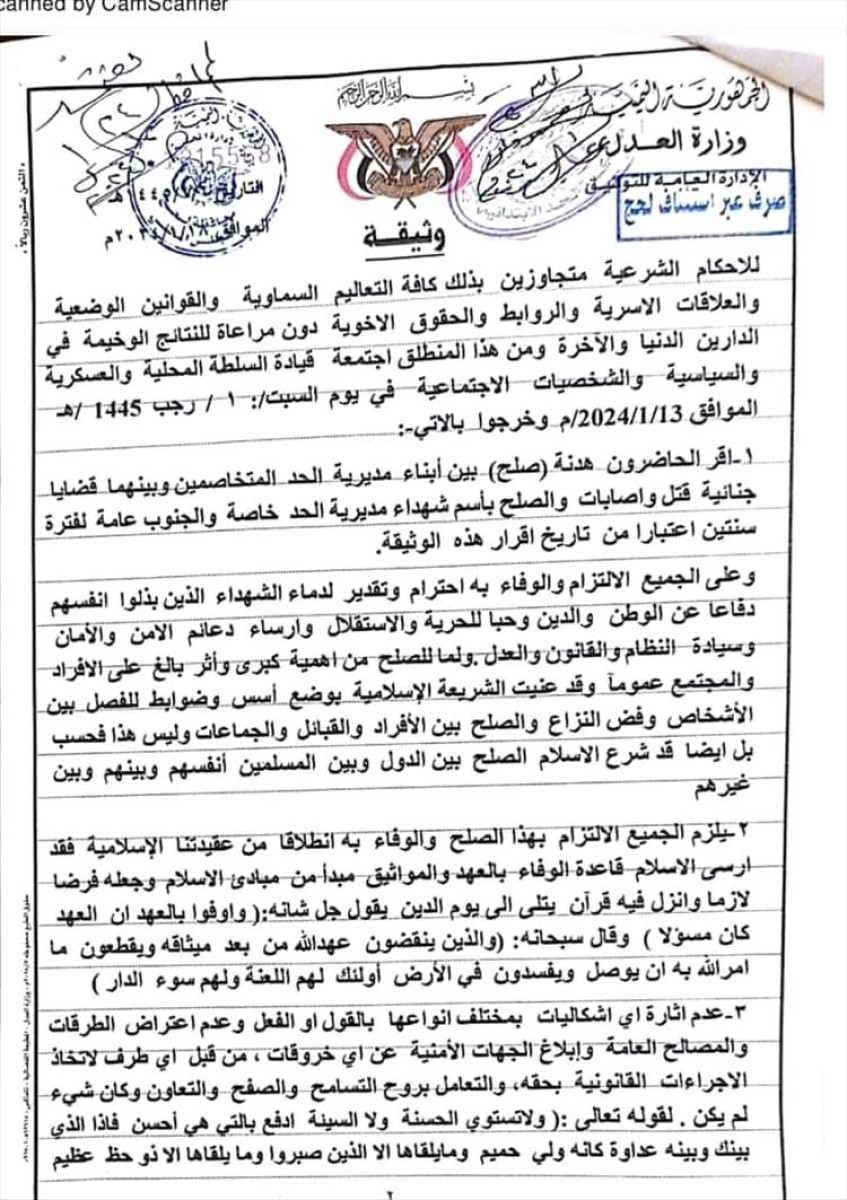 canned by CamScanner
بسم الله الرحمن الرحيم
الجمهورية اليمنية
وزارة العدل
الإدارة العامة للتوثيق
صرف عبر استئناف لحج
15558
التاريخ
الموافق
وثيقة
للاحكام الشرعية متجاوزين بذلك كافة التعاليم السماوية والقوانين الوضعية
والعلاقات الاسرية والروابط والحقوق الاخوية دون مراعاة للنتائج الوخيمة في
الدارين الدنيا والآخرة ومن هذا المنطلق اجتمعة قيادة السلطة المحلية والعسكرية
والسياسية والشخصيات الاجتماعية في يوم السبت/: ١ / رجب 1445 /هـ
الموافق 2024/1/13/م وخرجوا بالاتي:-
١-اقر الحاضرون هدنة (صلح) بين أبناء مديرية الحد المتخاصمين وبينهما قضايا
جنائية قتل واصابات والصلح بأسم شهداء مديرية الحد خاصة والجنوب عامة لفترة
سنتين اعتبارا من تاريخ اقرار هذه الوثيقة.
وعلى الجميع الالتزام والوفاء به احترام وتقدير لدماء الشهداء الذين بذلوا انفسهم
دفاعا عن الوطن والدين وحبا للحرية والاستقلال وارساء دعائم الامن والأمان
وسيادة النظام والقانون والعدل .ولما للصلح من اهمية كبرى وأثر بالغ على الافراد
والمجتمع عموماً وقد عنيت الشريعة الإسلامية بوضع أسس وضوابط للفصل بين
الأشخاص وفض النزاع والصلح بين الأفراد والقبائل والجماعات وليس هذا فحسب
بل ايضا قد شرع الاسلام الصلح بين الدول وبين المسلمين أنفسهم وبينهم وبين
غيرهم
٢-يلزم الجميع الالتزام بهذا الصلح والوفاء به انطلاقا من عقيدتنا الإسلامية فقد
ارسى الاسلام قاعدة الوفاء بالعهد والمواثيق مبدأ من مبادئ الاسلام وجعله فرضا
لازما وانزل فيه قرآن يتلى الى يوم الدين يقول جل شانه:( واوفوا بالعهد ان العهد
كان مسؤلا ) وقال سبحانه: (والذين ينقضون عهدالله من بعد ميثاقه ويقطعون ما
امرالله به ان يوصل ويفسدون في الأرض أولئك لهم اللعنة ولهم سوء الدار )
٣-عدم اثارة اي اشكاليات بمختلف انواعها بالقول او الفعل وعدم اعتراض الطرقات
والمصالح العامة وإبلاغ الجهات الأمنية عن اي خروقات ، من قبل اي طرف لاتخاذ
الاجراءات القانونية بحقه، والتعامل بروح التسامح والصفح والتعاون وكان شيء
لم يكن . لقوله تعالى :( ولاتستوي الحسنة ولا السيئة ادفع بالتي هي أحسن فاذا الذي
بينك وبينه عداوة كانه ولي حميم ومايلقاها الا الذين صبروا وما يلقاها الا ذو حظ عظيم
٢
« الثمن عشرون ريالاً »